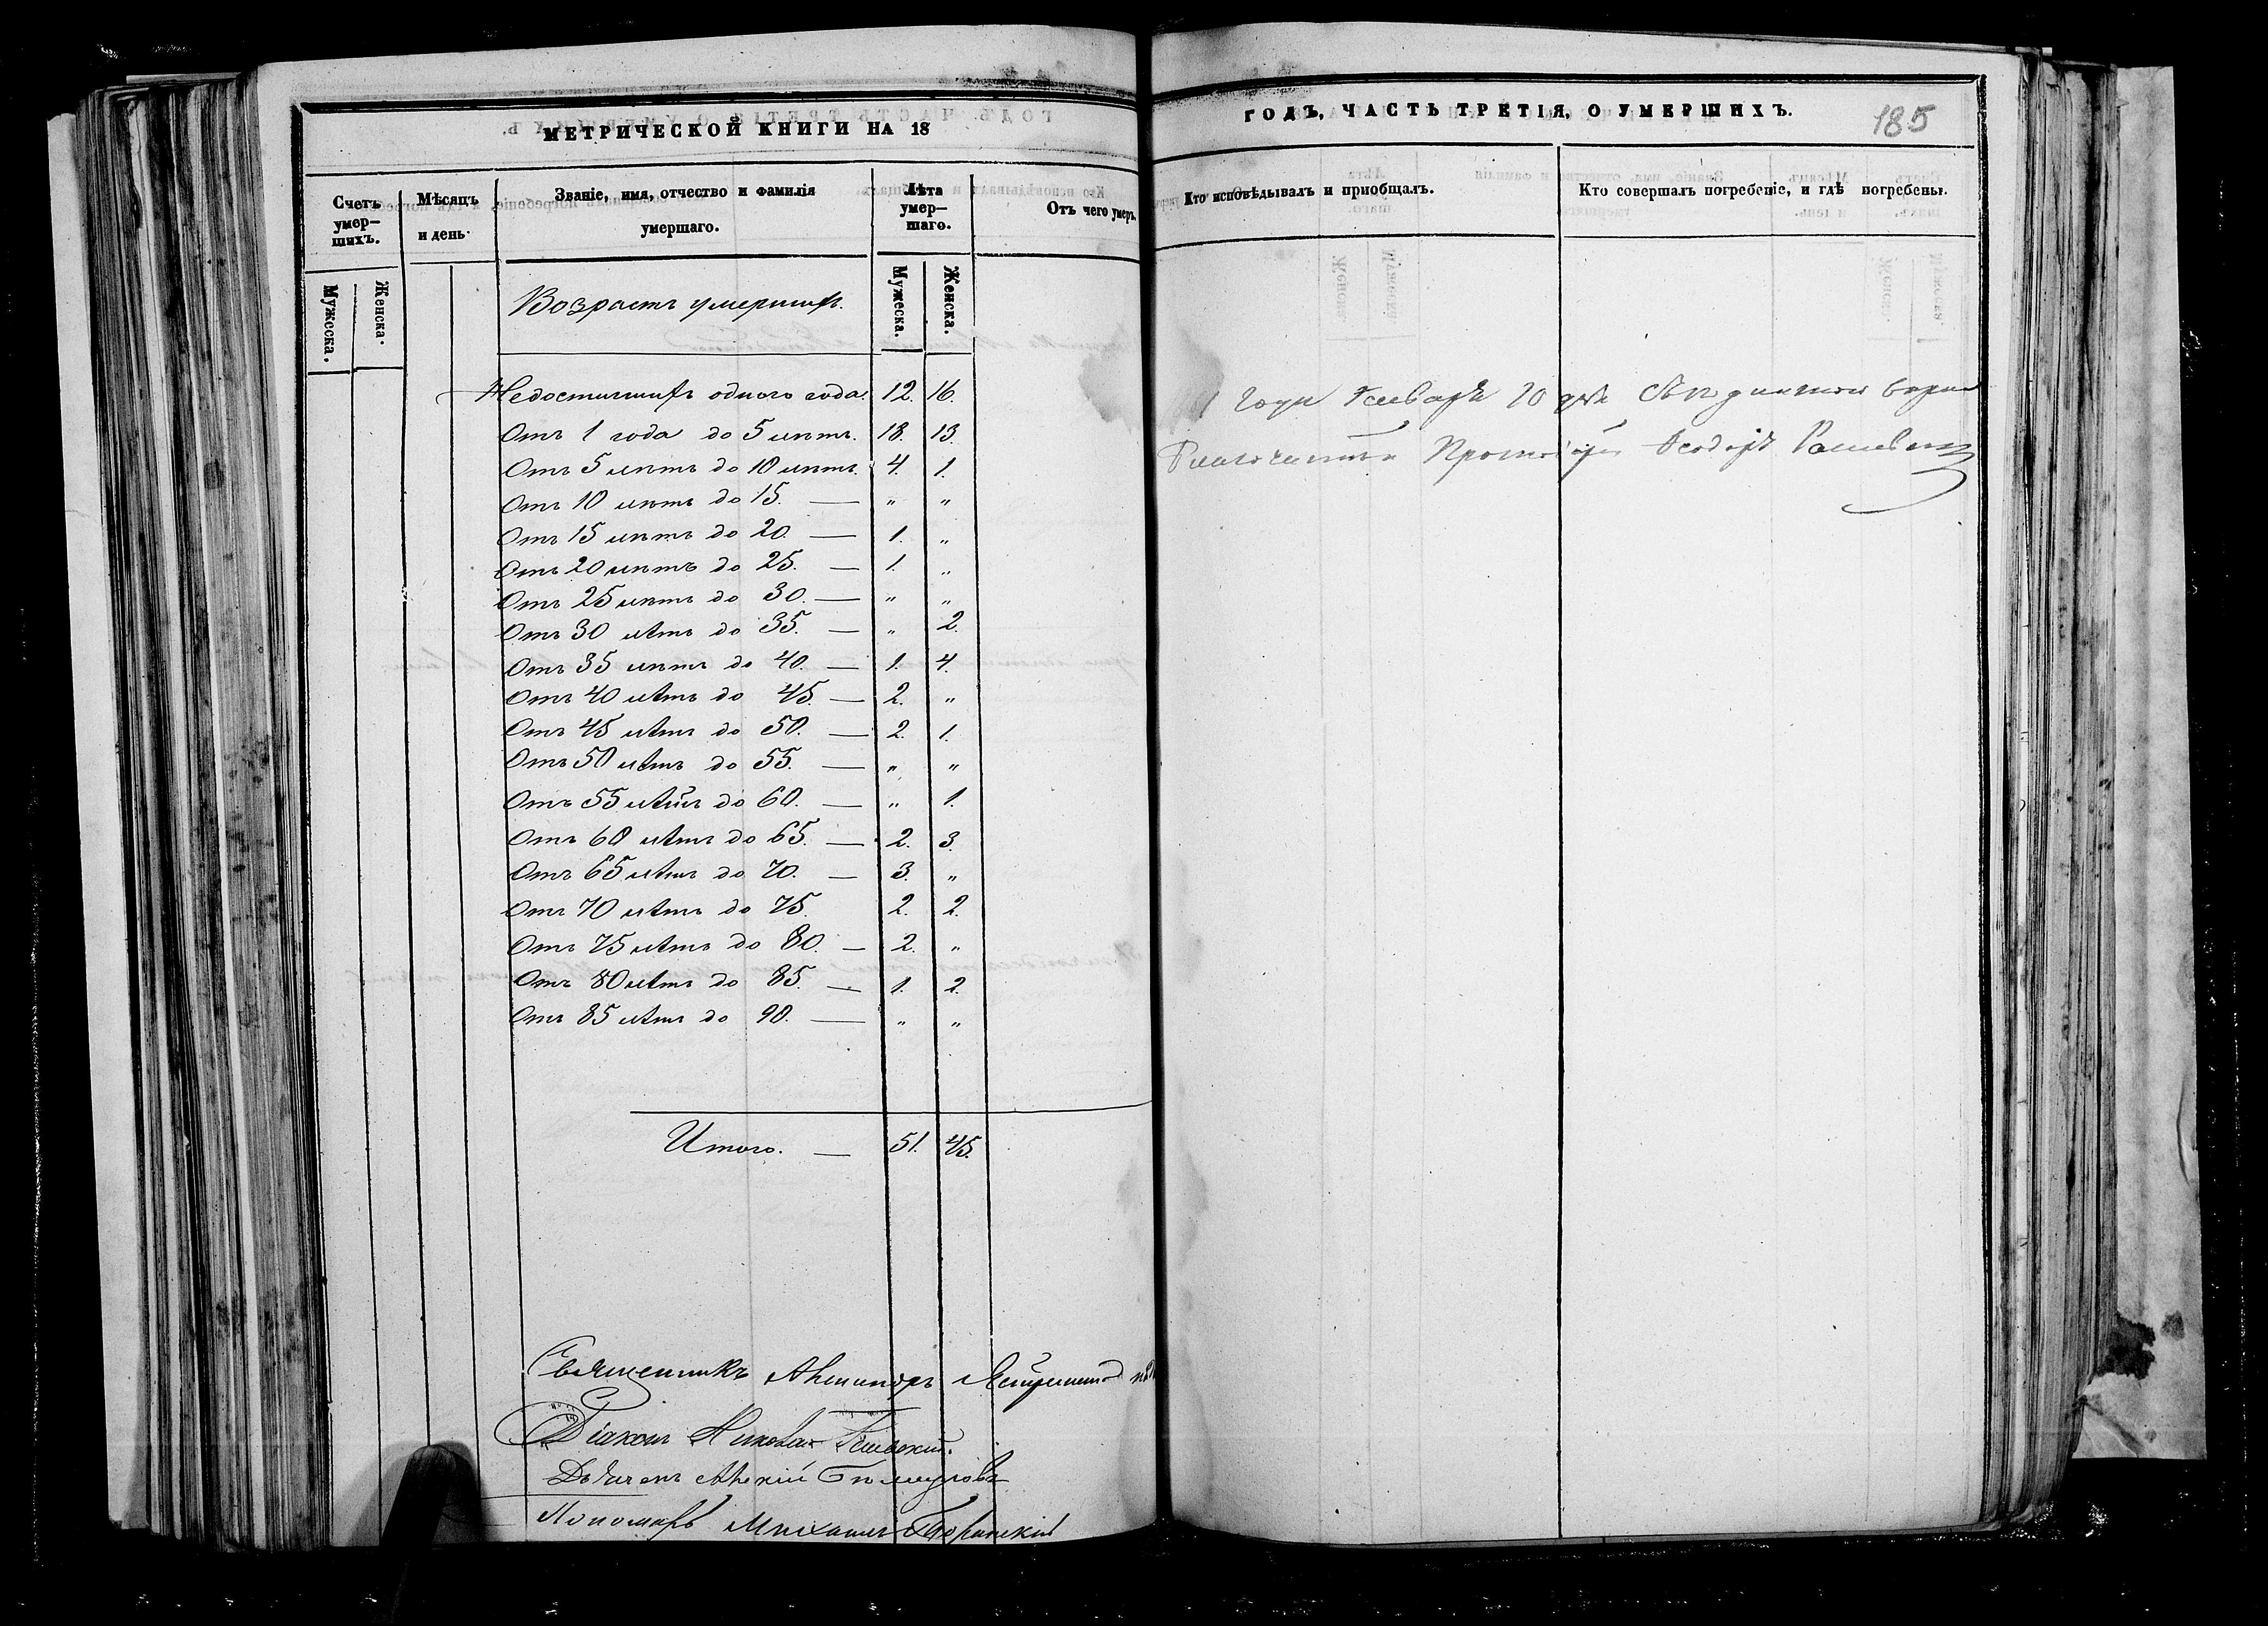 МЕТРИЧЕСКОЙ КНИГИ НА 18
Счетъ умер-шихъ.
Мѣсяцъ и день.
Званіе, имя, отчество и фамилія умершаго.
Лѣта умер-шаго.
Отъ чего умеръ.
Мужеска.
Женска.
Мужеска.
Женска.
Возрастъ умершихъ.
Недостигшихъ одного года. 12. 16.
Отъ 1 года до 5 лѣтъ. 18. 13.
Отъ 5 лѣтъ до 10 лѣтъ. 4. 1.
Отъ 10 лѣтъ до 15. — „ „
Отъ 15 лѣтъ до 20. — 1. „
Отъ 20 лѣтъ до 25. — 1. „
Отъ 25 лѣтъ до 30. — „ „
Отъ 30 лѣтъ до 35. — „ 2.
Отъ 35 лѣтъ до 40. — 1. 4.
Отъ 40 лѣтъ до 45. — 2. „
Отъ 45 лѣтъ до 50. — 2. 1.
Отъ 50 лѣтъ до 55. — „ „
Отъ 55 лѣтъ до 60. — „ 1.
Отъ 60 лѣтъ до 65. — 2. 3.
Отъ 65 лѣтъ до 70. — 3. „
Отъ 70 лѣтъ до 75. 2. 2.
Отъ 75 лѣтъ до 80. — 2. „
Отъ 80 лѣтъ до 85. — 1. 2.
Отъ 85 лѣтъ до 90. — „ „
Итого. — 51. 45.
Священникъ
Діаконъ Николай
Дьячекъ
Пономарь Михаилъ
ГОДЪ, ЧАСТЬ ТРЕТІЯ, О УМЕРШИХЪ.
185
Кто исповѣдывалъ и пріобщалъ.
Кто совершалъ погребеніе, и гдѣ погребены.
года Генваря 20 дня
Благочинный Протоіерей Ѳеодоръ